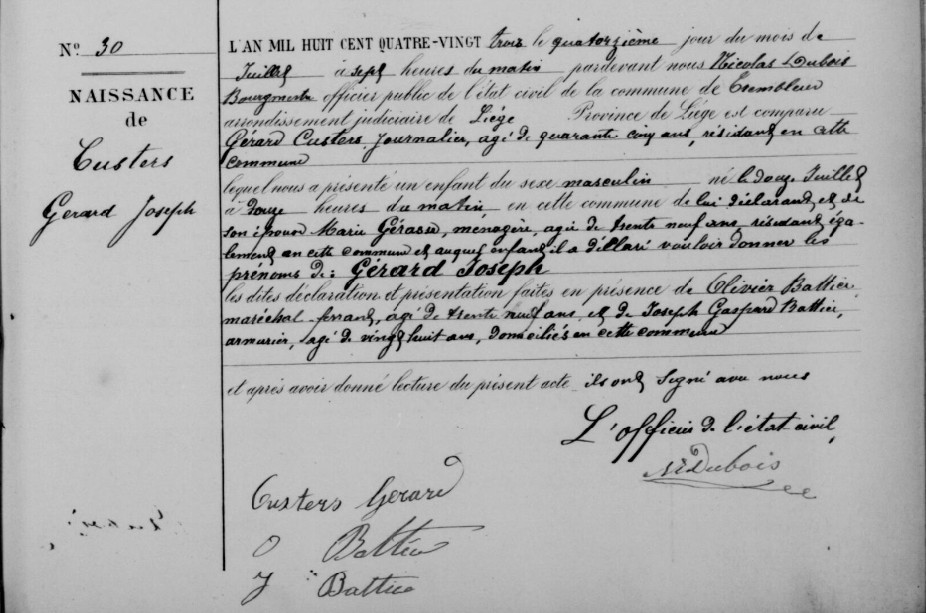 Nº 30
NAISSANCE
de
Custers
Gerard Joseph
L'AN MIL HUIT CENT QUATRE-VINGT trois le quatorzième jour du mois de
Juillet à sept heures du matin pardevant nous Nicolas Dubois
Bourgmestre officier public de l'état civil de la commune de Trembleur
arrondissement judiciaire de Liége Province de Liége est comparu
Gérard Custers, Journalier, agé de quarante cinq ans, résidant en cette
commune
lequel nous a présenté un enfant du sexe masculin né le douze Juillet
à douze heures du matin, en cette commune de lui déclarant et de
son épouse Marie Gérasu, ménagère, agée de trente neuf ans, résidant éga-
lement en cette commune et auquel enfant il a déllaré vouloir donner les
prénoms de : Gérard Joseph
les dites déclaration et présentation faites en présence de Olivier Battice
maréchal-ferrant, agé de trente neuf ans, et de Joseph Gaspard Battice,
armurier, agé de vingt huit ans, domiciliés en cette commune
et après avoir donné lecture du présent acte ils ont signé avec nous
L'officier de l'état civil,
Dubois
Custers Gerard
O Battice
J Battice